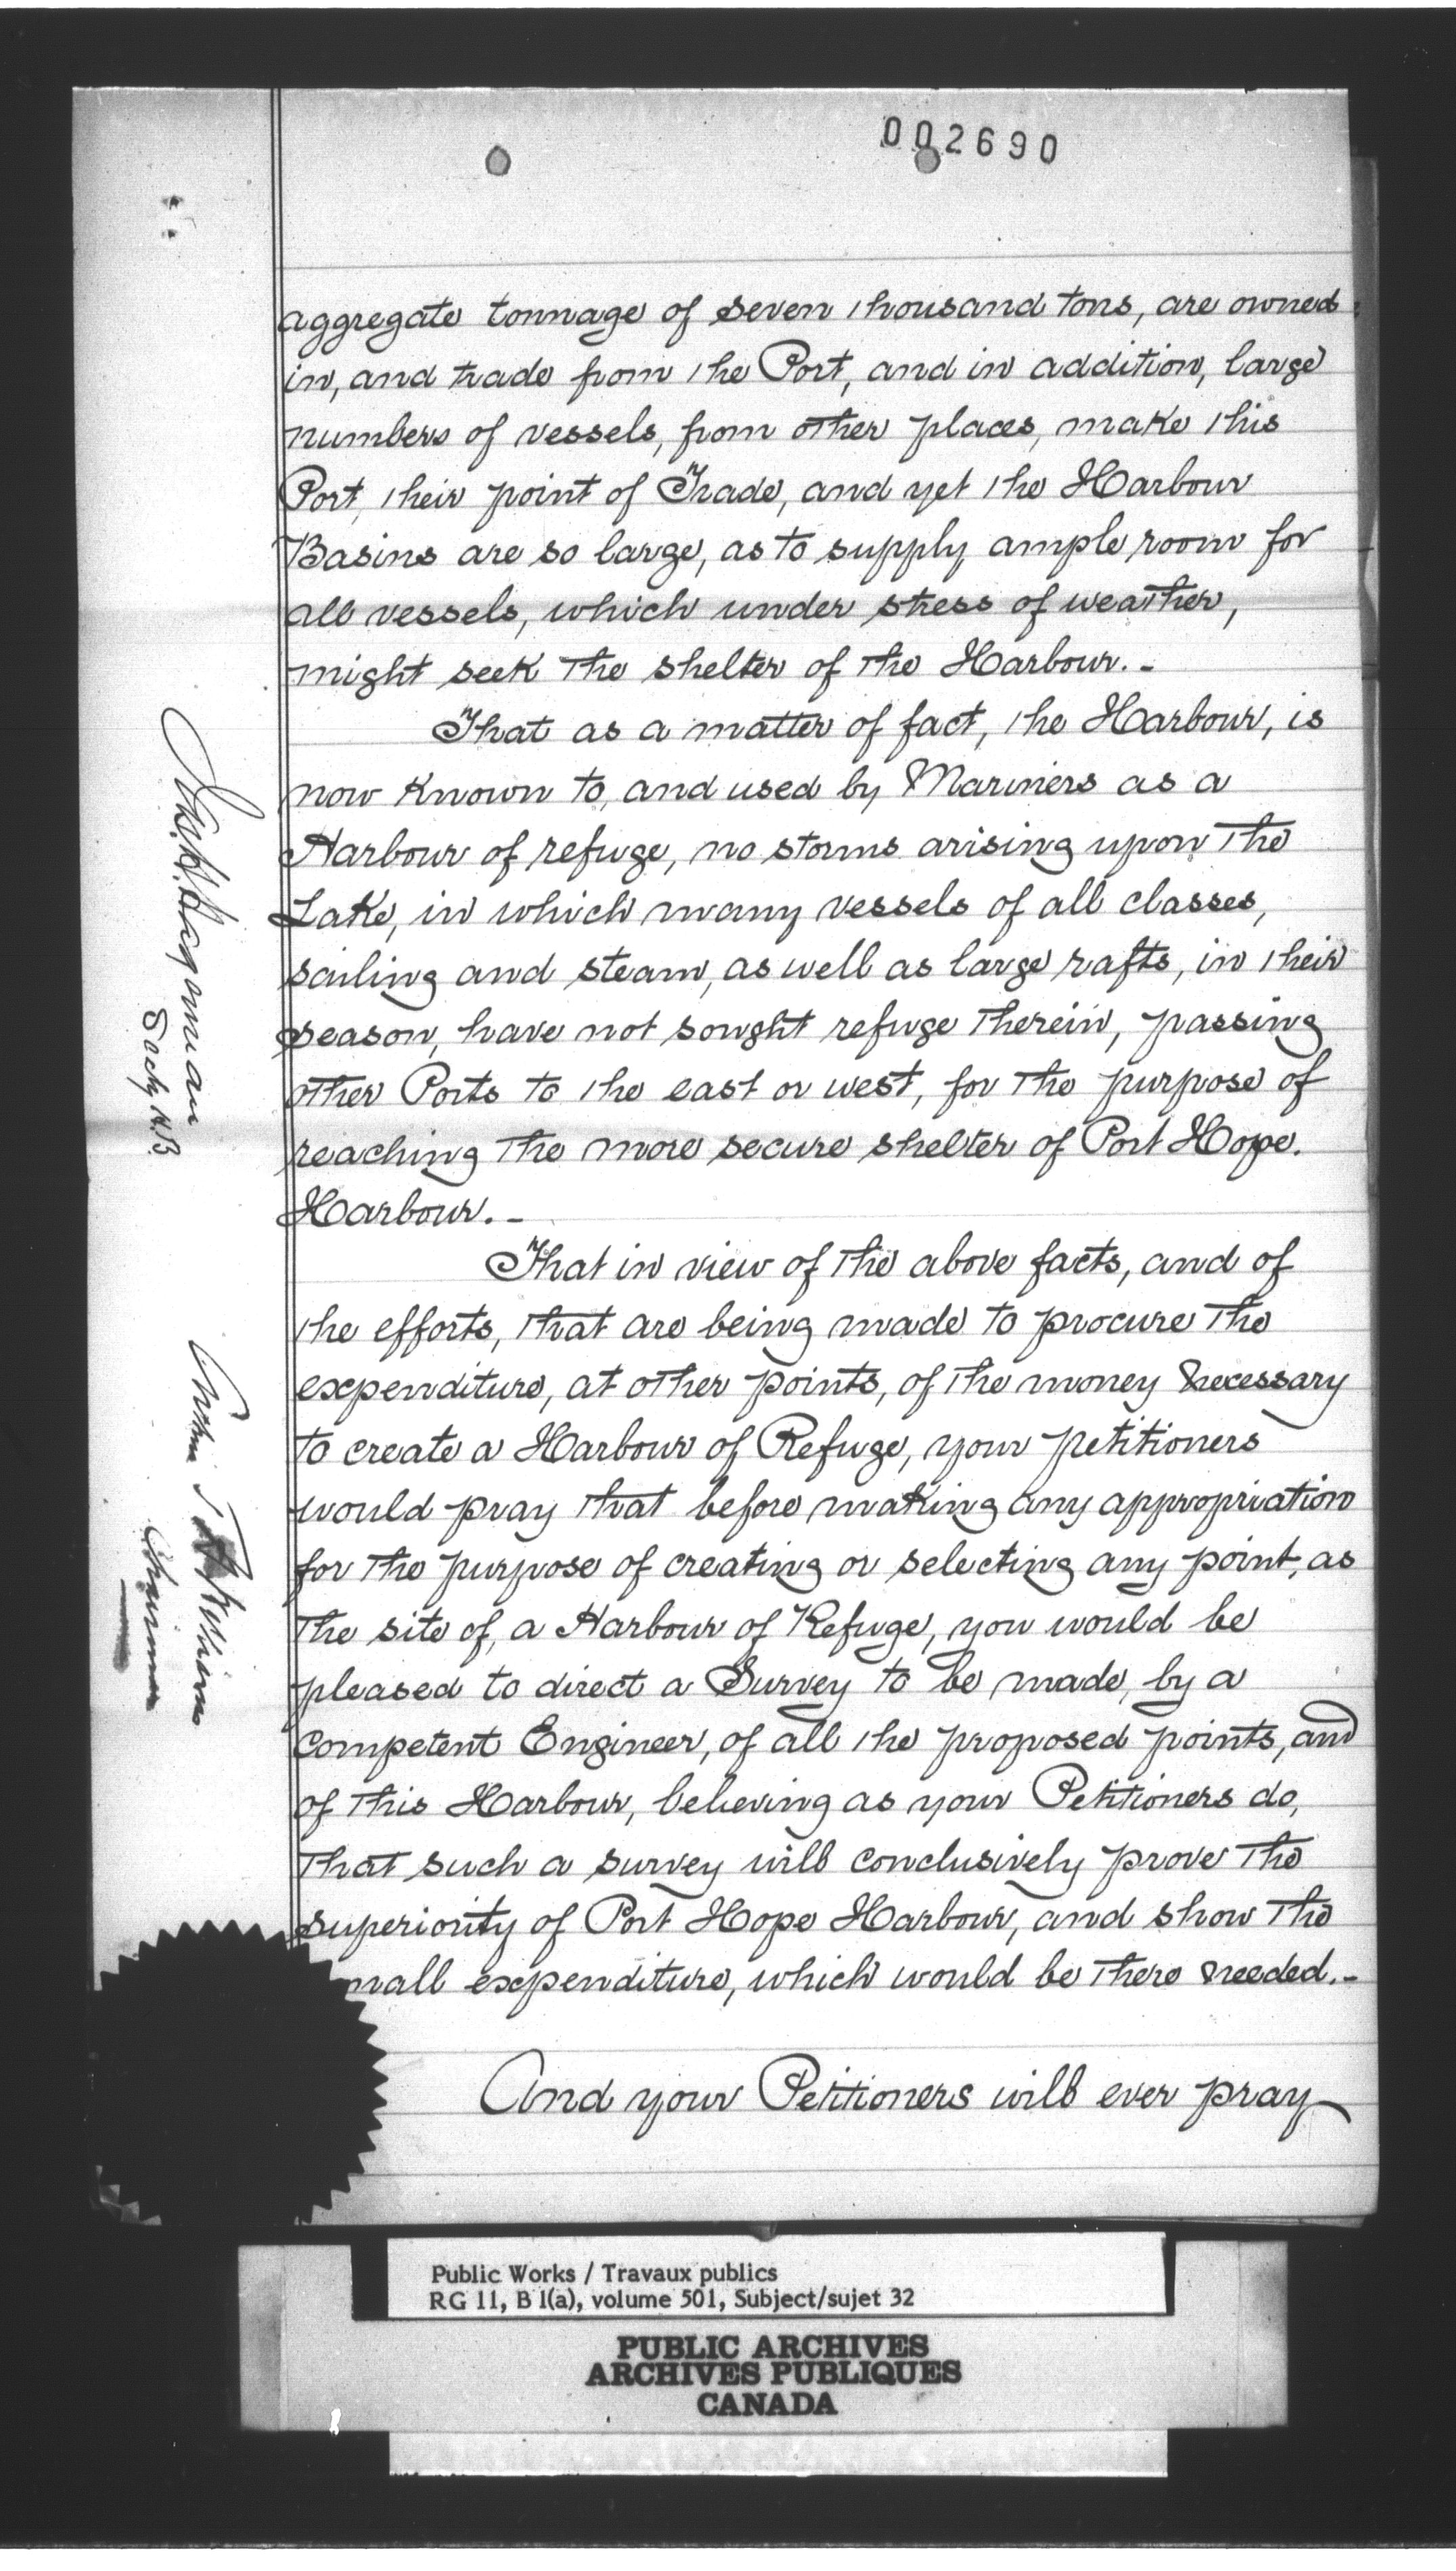 002690
aggregate tonnage of seven thousand tons, are owned
in, and trade from the Port, and in addition, large
numbers of vessels, from other places, make this
Port, their point of Trade, and yet the Harbour
Basins are so large, as to supply ample room for
all vessels, which under stress of weather,
might seek the shelter of the Harbour.-
That as a matter of fact, the Harbour, is
now known to, and used by Mariners as a
Harbour of refuge, no storms arising upon the
Lake, in which many vessels of all classes,
sailing and steam, as well as large rafts, in their
season, have not sought refuge therein, passing
other Ports to the east or west, for the purpose of
reaching the more secure shelter of Port Hope.
Harbour.-
That in view of the above facts, and of
the efforts, that are being made to procure the
expenditure, at other points, of the money necessary
to create a Harbour of Refuge, your petitioners
would pray that before making any appropriation
for the purpose of creating or selecting any point, as
the site of, a Harbour of Refuge, you would be
pleased to direct a Survey to be made, by a
competent Engineer, of all the proposed points, and
of this Harbour, believing as your Petitioners do,
that such a survey will conclusively prove the
superiority of Port Hope Harbour, and show the
mall expenditure, which would be there needed.-
And your Petitioners will ever pray
Secty H.B.
Williams
Chairman
Public Works / Travaux publics
RG 11, B 1(a), volume 501, Subject/sujet 32
PUBLIC ARCHIVES
ARCHIVES PUBLIQUES
CANADA